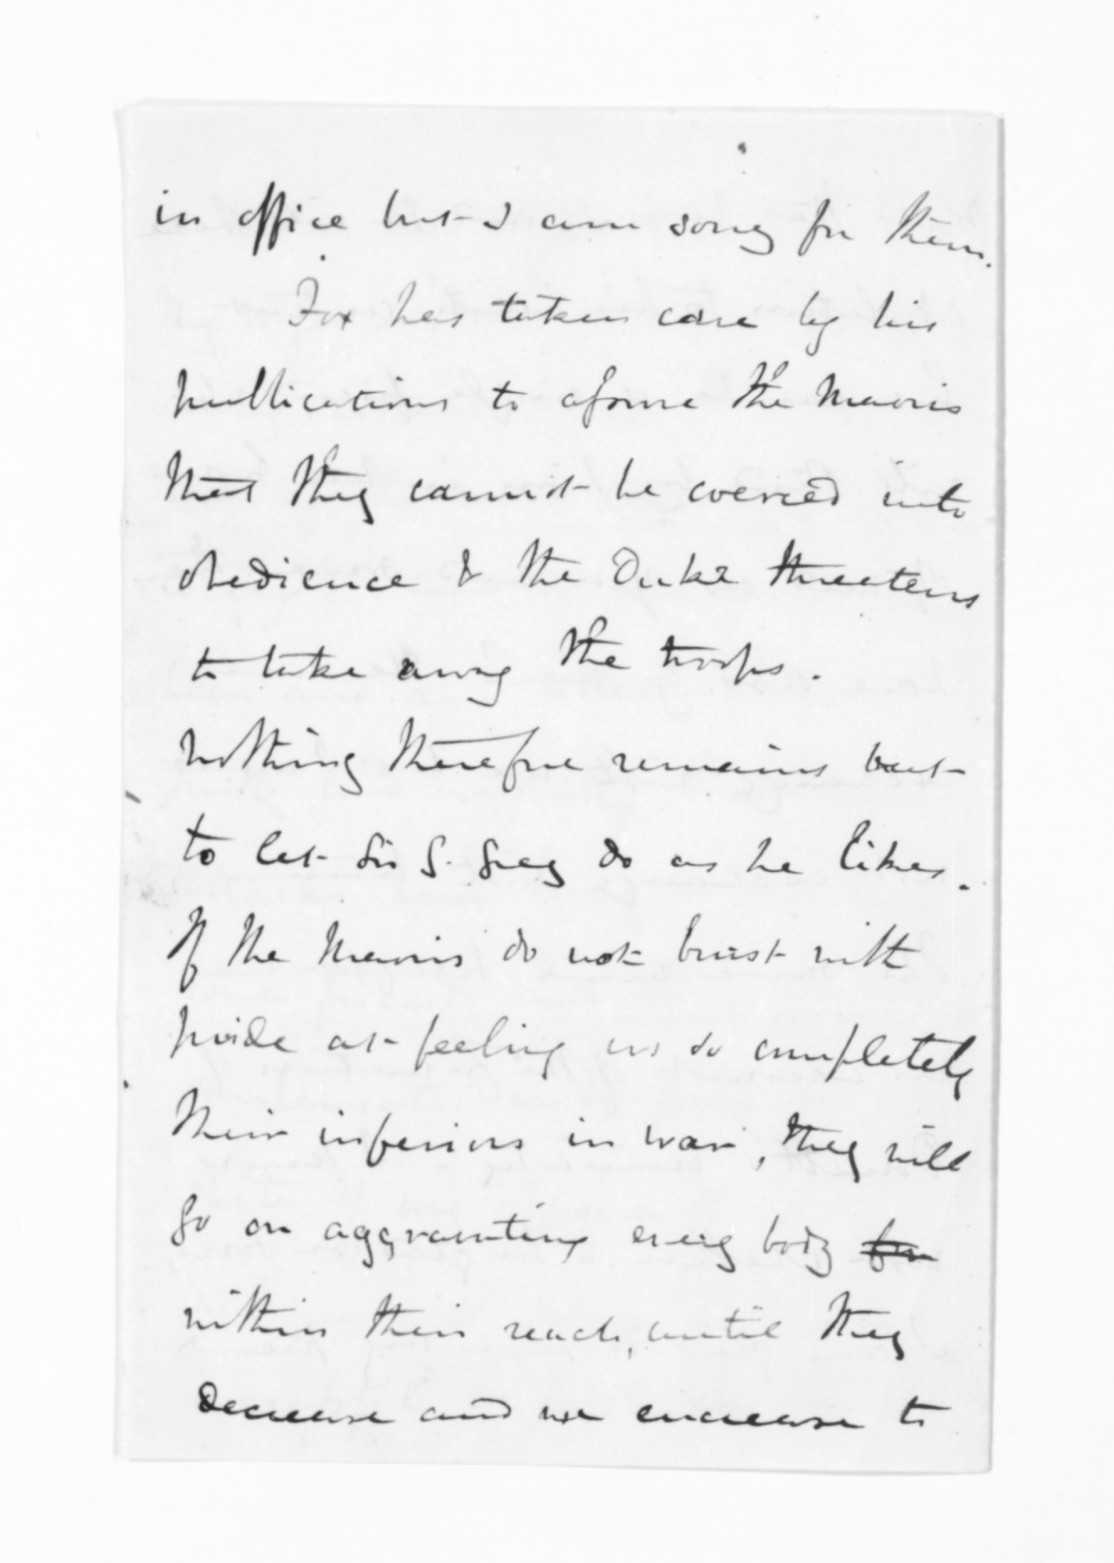 in office but I am sorry for them.
Fox has taken care by his
publications to aforme the Maoris
that they cannot be coerced into
obedience & the Duke threatens
to take away the troops.
nothing therefore remains but
to let Sir G. Grey do as he likes.
If the Maoris do not burst with
pride at feeling us so completely
their inferiors in war, they will
go on aggravating every body for
within their reach, until they
decrease and we encrease to